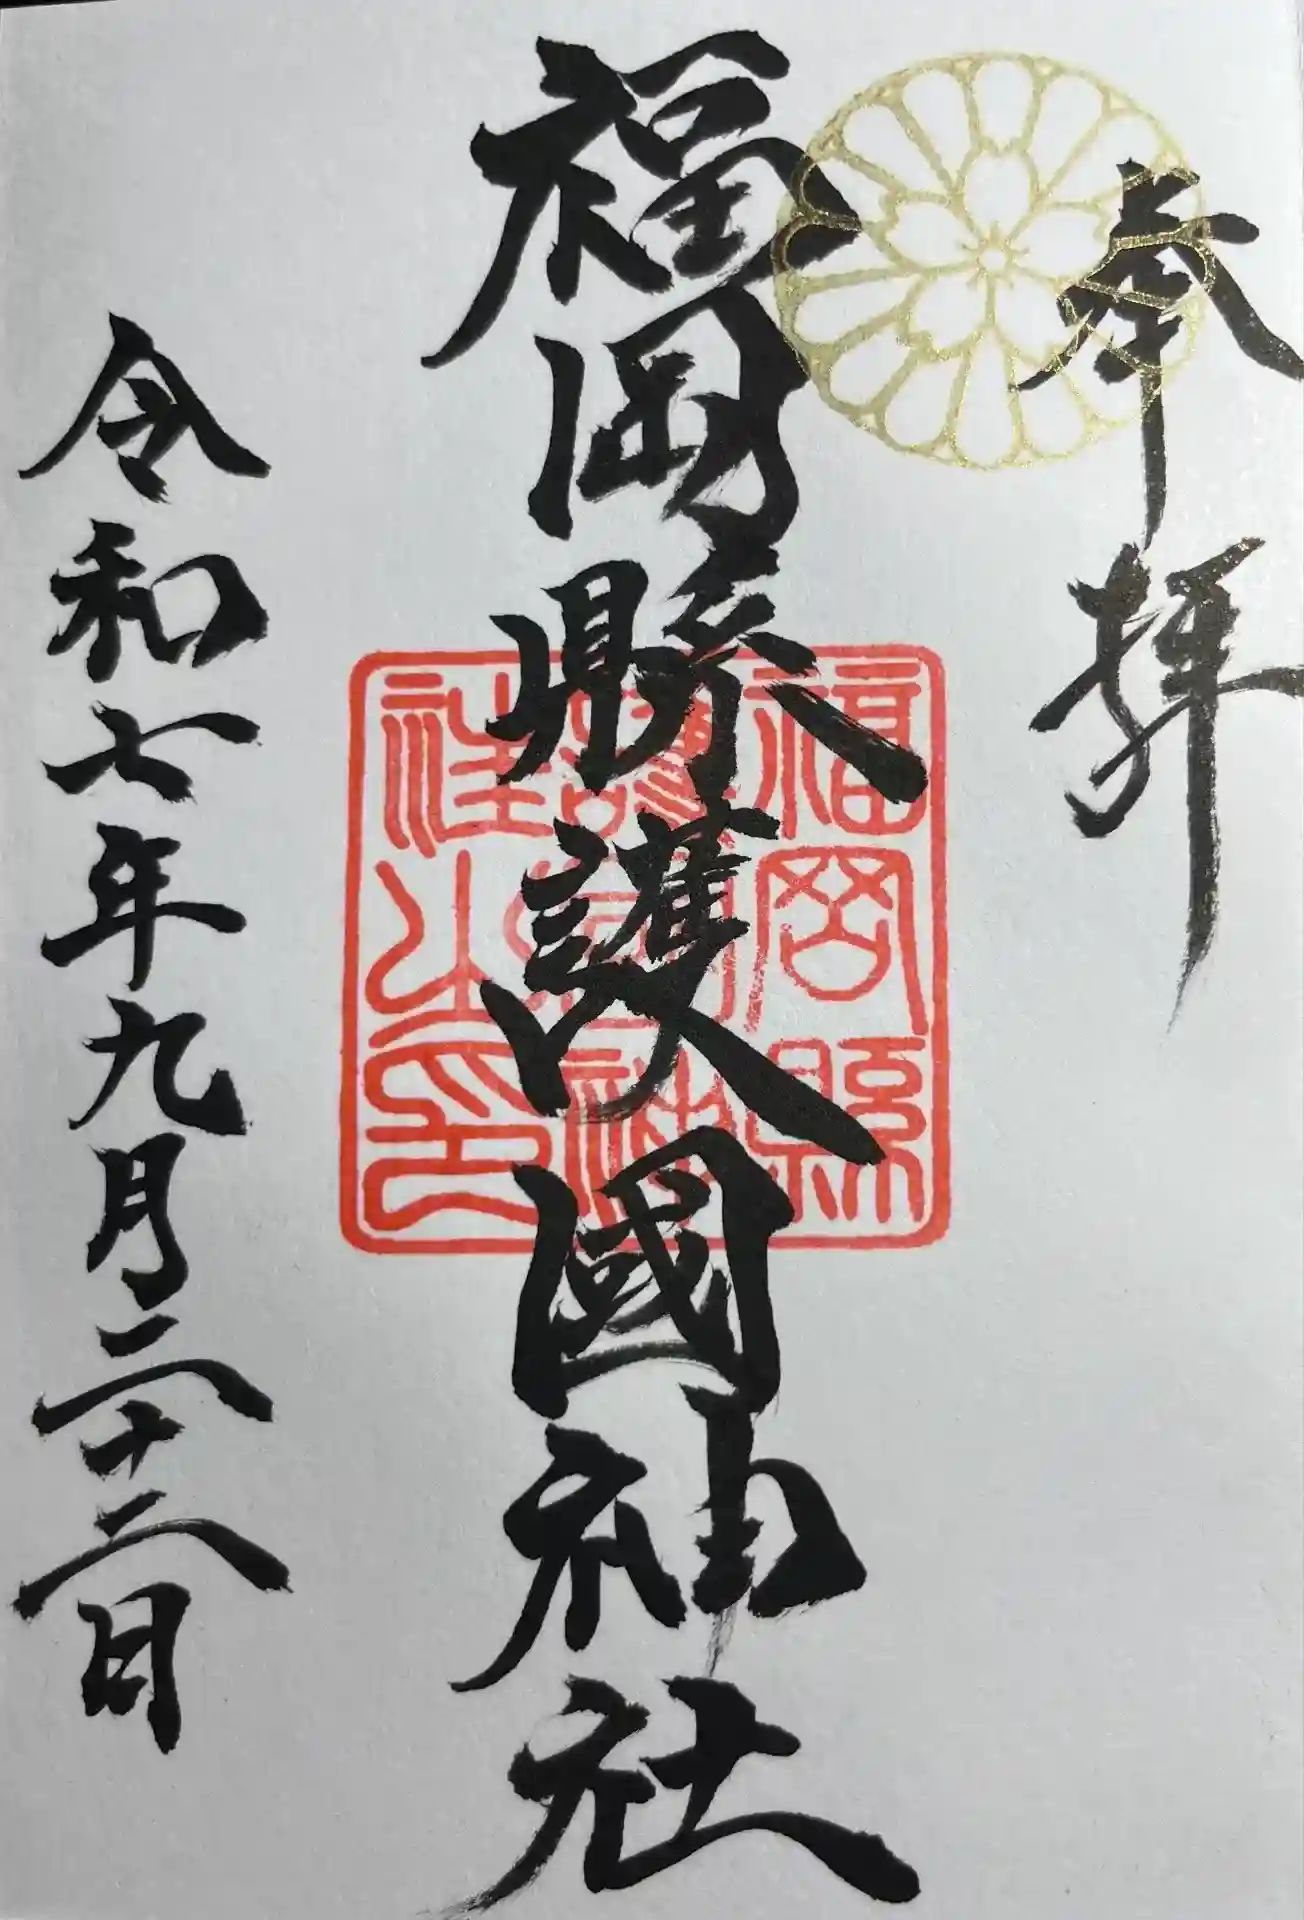 奉拝
福岡縣護國神社
福岡縣
護国神
社之印
令和七年九月二十二日